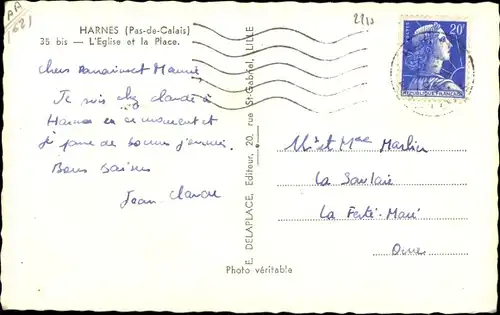 AA
1621
HARNES (Pas-de-Calais)
35 bis — L'Eglise et la Place.
2213
20F
POSTES
REPUBLIQUE FRANÇAISE
Chers et Mamie
Je suis chez claude à
Harnes en ce moment et
je passe de bonnes journées.
Bons baisers
Jean-Claude
E. DELAPLACE, Editeur, 20, rue St-Gabriel, LILLE
Photo véritable
Mr et Mme Marlin
La Saulaie
La Ferté-Macé
Orne